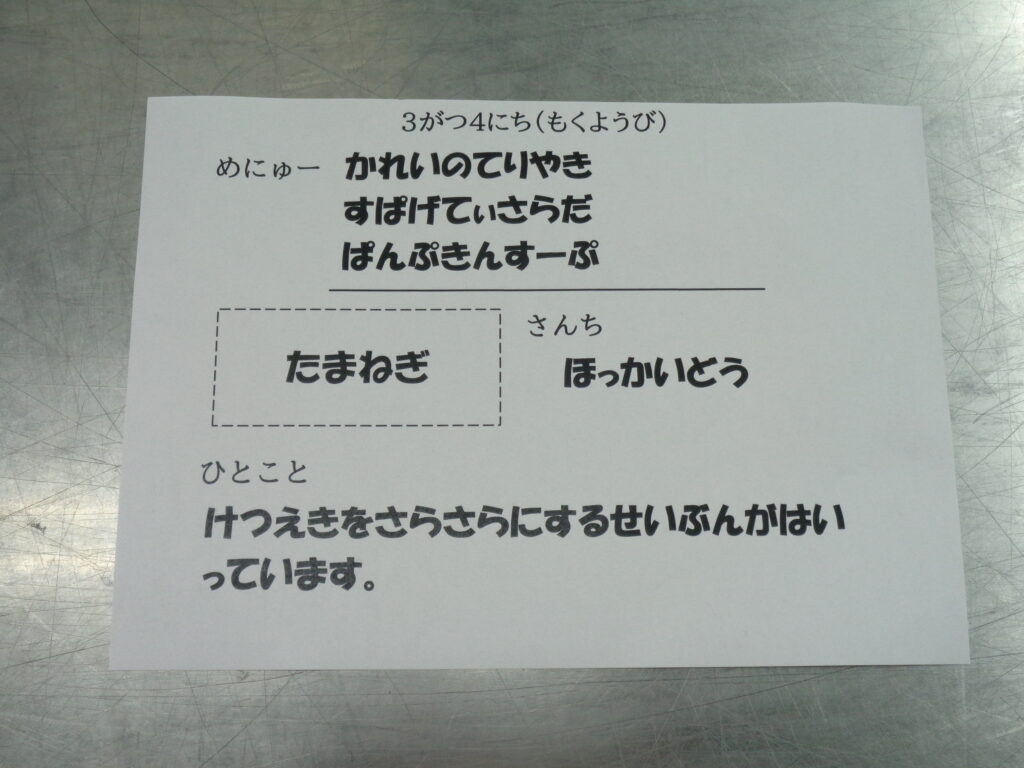 3がつ4にち(もくようび)
めにゅー かれいのてりやき
すぱげてぃさらだ
ぱんぷきんすーぷ
さんち
たまねぎ ほっかいどう
ひとこと
けつえきをさらさらにするせいぶんがはい
っています。